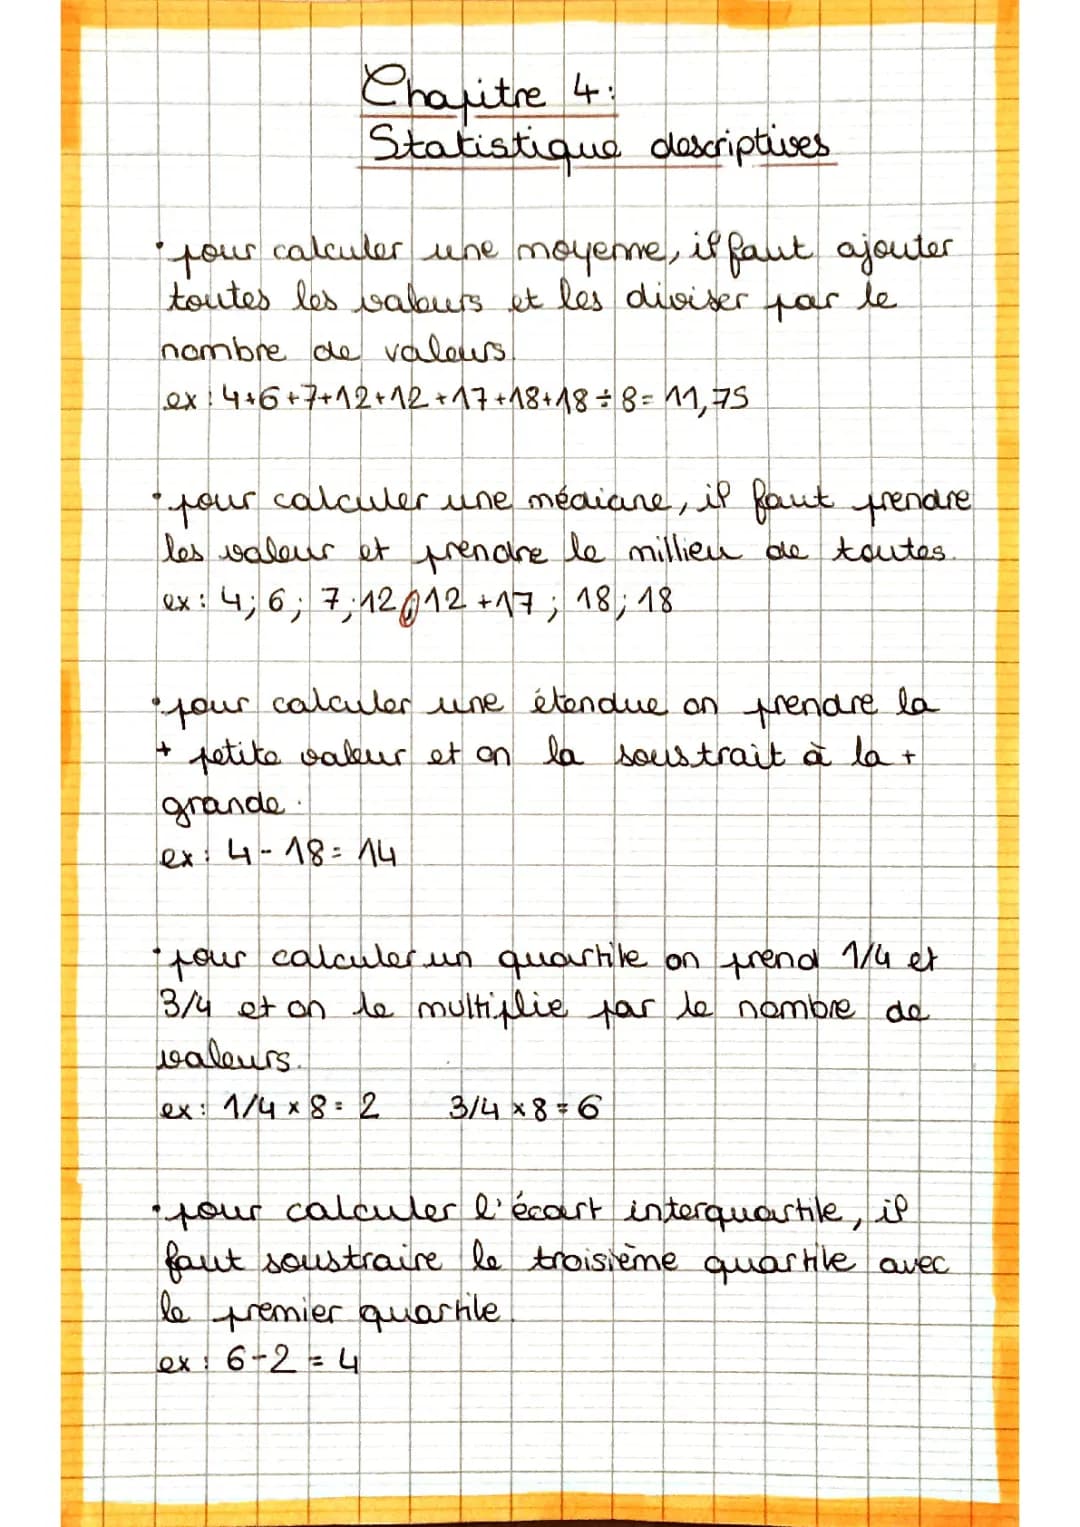 Chapitre 4:
Statistique descriptives
• pour calculer une moyenne, il faut ajouter
toutes les valeurs et les diviser par le
nombre de valeurs.
ex : 4+6+7+12+12+17+18+18÷8= 11,75
• pour calculer une médiane, il faut prendre
les valeur et prendre le millieu de toutes.
ex : 4; 6; 7;12;12 +17 ; 18; 18
• pour calculer une étendue on prendre la
+ petite valeur et on la soustrait à la +
grande.
ex : 4 - 18 = 14
• pour calculer un quartile on prend 1/4 et
3/4 et on le multiplie par le nombre de
valeurs.
ex : 1/4 × 8 = 2 3/4 × 8 = 6
• pour calculer l'écart interquartile, il
faut soustraire le troisième quartile avec
le premier quartile.
ex : 6-2 = 4